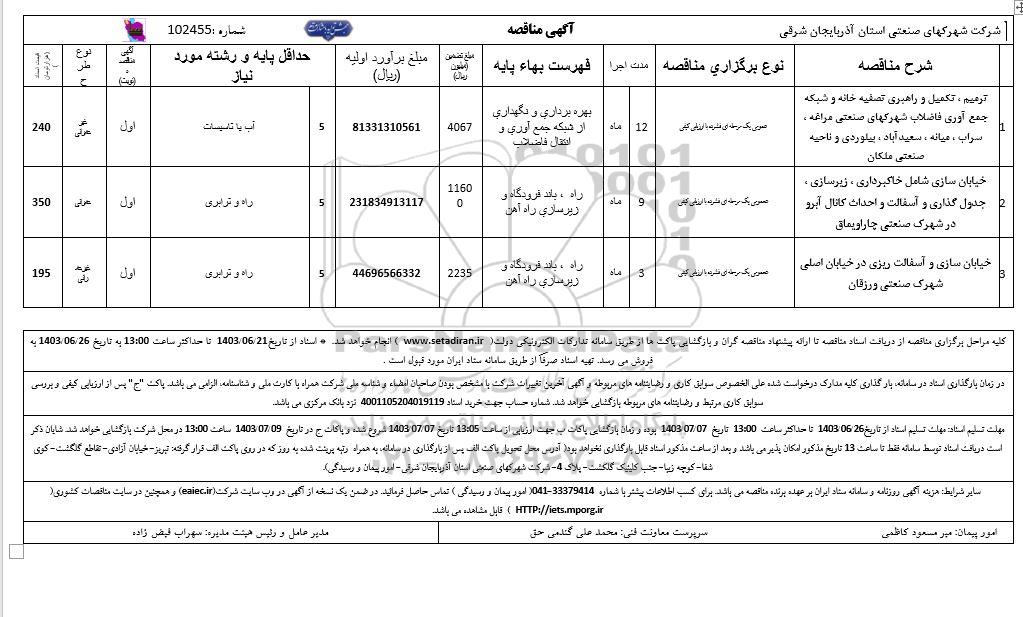 شرکت شهرکهای صنعتی استان آذربایجان شرقی
آگهی مناقصه
شماره :102455
شرح مناقصه
نوع برگزاري مناقصه
مدت اجرا
فهرست بهاء پایه
مبلغ تضمین (میلیون ریال)
مبلغ برآورد اولیه (ریال)
حداقل پایه و رشته مورد نیاز
آگهی مناقصه (نوبت)
نوع طرح
1
ترمیم ، تکمیل و راهبری تصفیه خانه و شبکه
جمع آوری فاضلاب شهرکهای صنعتی مراغه ،
سراب ، میانه ، سعیدآباد ، بیلوردی و ناحیه
صنعتی ملکان
عمومی یک مرحله ای فشرده با ارزیابی کیفی
12
ماه
بهره برداري و نگهداري
از شبکه جمع آوري و
انتقال فاضلاب
4067
81331310561
5
آب یا تاسیسات
اول
غیر عمرانی
240
2
خیابان سازی شامل خاکبرداری ، زیرسازی ،
جدول گذاری و آسفالت و احداث کانال آبرو
در شهرک صنعتی چاراویماق
عمومی یک مرحله ای فشرده با ارزیابی کیفی
9
ماه
راه ، باند فرودگاه و
زیرسازي راه آهن
11600
231834913117
5
راه و ترابری
اول
عمرانی
350
3
خیابان سازی و آسفالت ریزی در خیابان اصلی
شهرک صنعتی ورزقان
عمومی یک مرحله ای فشرده با ارزیابی کیفی
3
ماه
راه ، باند فرودگاه و
زیرسازي راه آهن
2235
44696566332
5
راه و ترابری
اول
غیرعمرانی
195
کلیه مراحل برگزاری مناقصه از دریافت اسناد مناقصه تا ارائه پیشنهاد مناقصه گران و بازگشایی پاکت ها از طریق سامانه تدارکات الکترونیکی دولت( www.setadiran.ir ) انجام خواهد شد. * اسناد از تاریخ1403/06/21 تا حداکثر ساعت 13:00 به تاریخ 1403/06/26 به
فروش می رسد. تهیه اسناد صرفاً از طریق سامانه ستاد ایران مورد قبول است .
در زمان بارگذاری اسناد در سامانه، بار گذاری کلیه مدارک درخواست شده علی الخصوص سوابق کاری و رضایتنامه های مربوطه و آگهی آخرین تغییرات شرکت با مشخص بودن صاحبان امضاء و شناسه ملی شرکت همراه با کارت ملی و شناسنامه، الزامی می باشد. پاکت "ج" پس از ارزیابی کیفی و بررسی
سوابق کاری مرتبط و رضایتنامه های مربوطه بازگشایی خواهد شد. شماره حساب جهت خرید اسناد 4001105204019119 نزد بانک مرکزی می باشد.
مهلت تسلیم اسناد: مهلت تسلیم اسناد از تاریخ1403/06/26 تا حداکثر ساعت 13:00 تاریخ 1403/07/07 بوده و زمان بازگشایی پاکات ب جهت ارزیابی از ساعت 13:05 تاریخ 1403/07/07 شروع شده و پاکات ج در تاریخ 1403/07/09 ساعت 13:00 در محل شرکت بازگشایی خواهد شد. شایان ذکر
است دریافت اسناد توسط سامانه فقط تا ساعت 13 تاریخ مذکور امکان پذیر می باشد و بعد از ساعت مذکور اسناد قابل بارگذاری نخواهد بود( آدرس محل تحویل پاکت الف پس از بارگذاری در سامانه، به همراه رتبه پرینت شده به روز که در روی پاکت الف قرار گرفته: تبریز-خیابان آزادی- تقاطع گلگشت- کوی
شفا- کوچه زیبا- جنب کلینیک گلگشت- پلاک 4- شرکت شهرکهای صنعتی استان آذربایجان شرقی- امور پیمان و رسیدگی).
سایر شرایط: هزینه آگهی روزنامه و سامانه ستاد ایران بر عهده برنده مناقصه می باشد. برای کسب اطلاعات بیشتر با شماره 33379414-041( امور پیمان و رسیدگی ) تماس حاصل فرمائید. در ضمن یک نسخه از آگهی در وب سایت شرکت(eaiec.ir) و همچنین در سایت مناقصات کشوری(
HTTP://iets.mporg.ir ) قابل مشاهده می باشد.
امور پیمان: میر مسعود کاظمی
سرپرست معاونت فنی: محمد علی گندمی حق
مدیر عامل و رئیس هیئت مدیره: سهراب فیض زاده
ParsNamadData